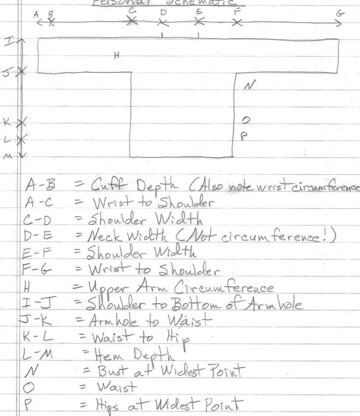 Personal Schematic
A B C D E F G
I
H
J
N
K O
L P
M
A-B = Cuff Depth (Also note wrist circumference
A-C = Wrist to Shoulder
C-D = Shoulder Width
D-E = Neck Width (Not circumference!)
E-F = Shoulder Width
F-G = Wrist to Shoulder
H = Upper Arm Circumference
I-J = Shoulder to Bottom of Armhole
J-K = Armhole to Waist
K-L = Waist to Hip
L-M = Hem Depth
N = Bust at Widest Point
O = Waist
P = Hips at Widest Point